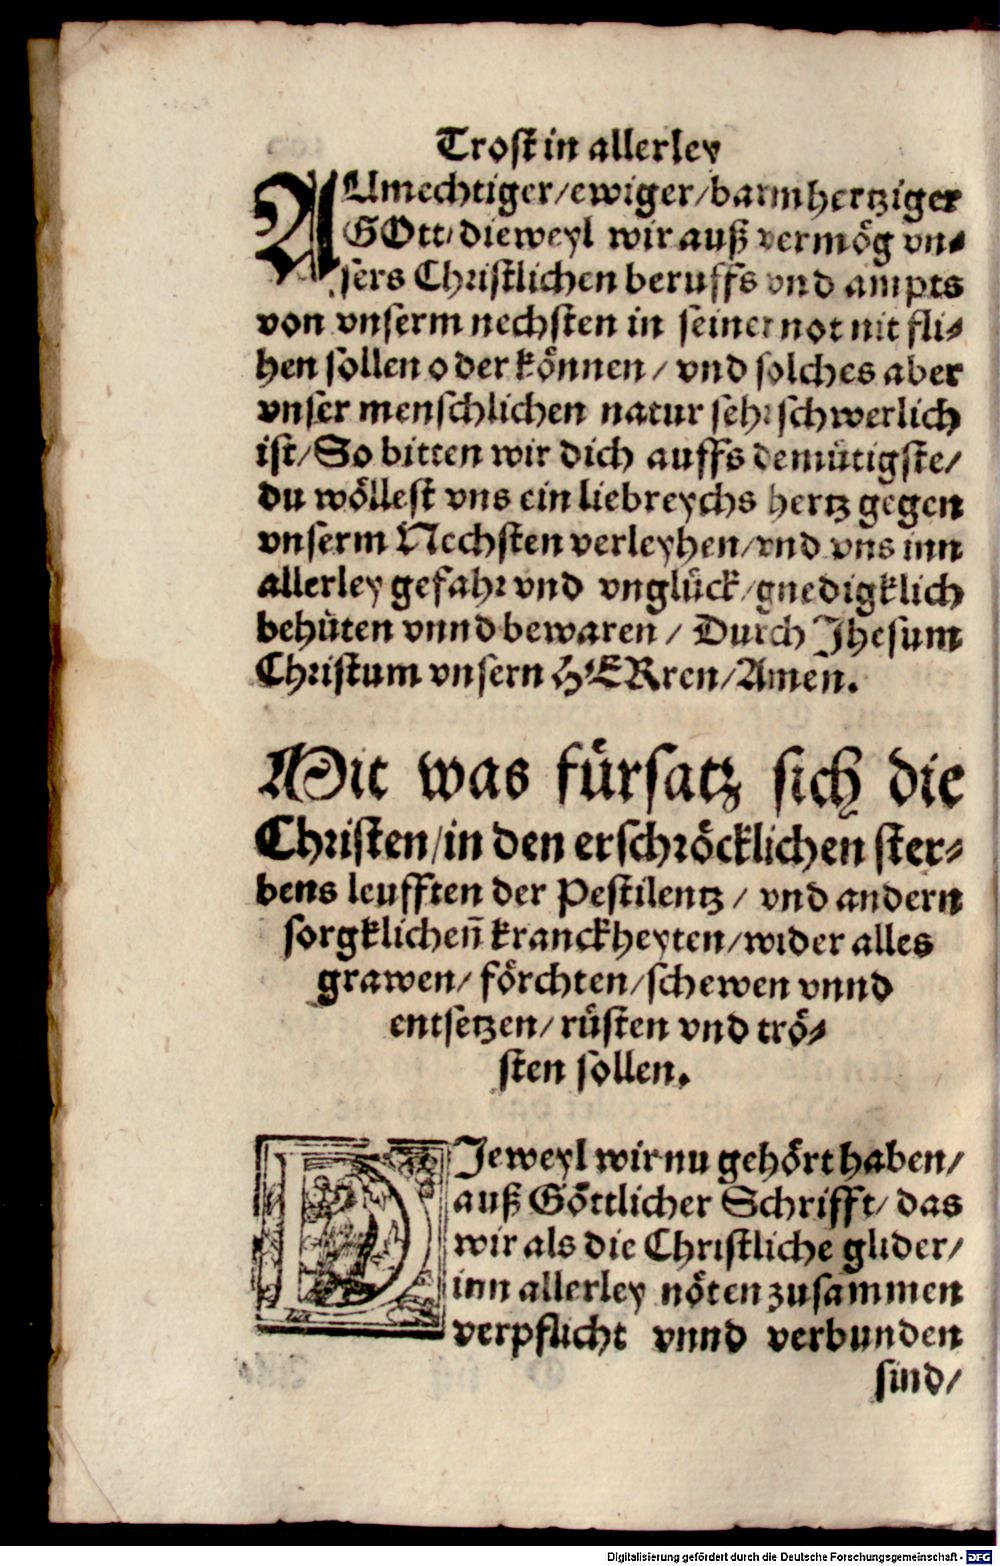 Trost in allerley
ALmechtiger/ewiger/barmhertziger
GOtt/dieweyl wir auß vermög vn⸗
sers Christlichen beruffs vnd ampts
von vnserm nechsten in seiner not nit fli⸗
hen sollen oder können/ vnd solches aber
vnser menschlichen natur sehr schwerlich
ist/So bitten wir dich auffs demütigste/
du wöllest vns ein liebreychs hertz gegen
vnserm Nechsten verleyhen/vnd vns inn
allerley gefahr vnd vnglück/gnedigklich
behüten vnnd bewaren/ Durch Jhesum
Christum vnsern HERren/Amen.
Mit was fürsatz sich die
Christen/in den erschröcklichen ster⸗
bens leufften der Pestilentz/ vnd andern
sorgklichen̄ kranckheyten/wider alles
grawen/ förchten/schewen vnnd
entsetzen/ rüsten vnd trö⸗
sten sollen.
DJeweyl wir nu gehört haben/
auß Göttlicher Schrifft/ das
wir als die Christliche glider/
inn allerley nöten zusammen
verpflicht vnnd verbunden
sind/
Digitalisierung gefördert durch die Deutsche Forschungsgemeinschaft - DFG